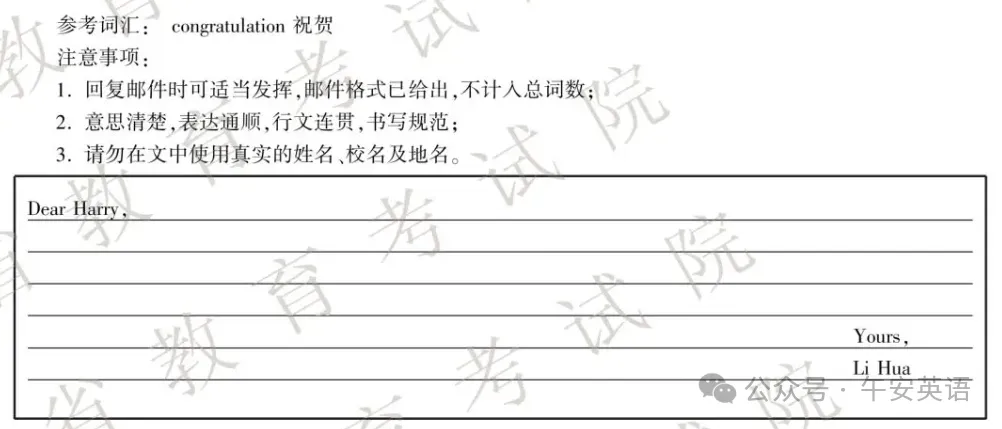 参考词汇： congratulation 祝贺
注意事项：
1. 回复邮件时可适当发挥,邮件格式已给出,不计入总词数；
2. 意思清楚,表达通顺,行文连贯,书写规范；
3. 请勿在文中使用真实的姓名、校名及地名。
Dear Harry,
Yours,
Li Hua
公众号 · 午安英语
省教育考试院